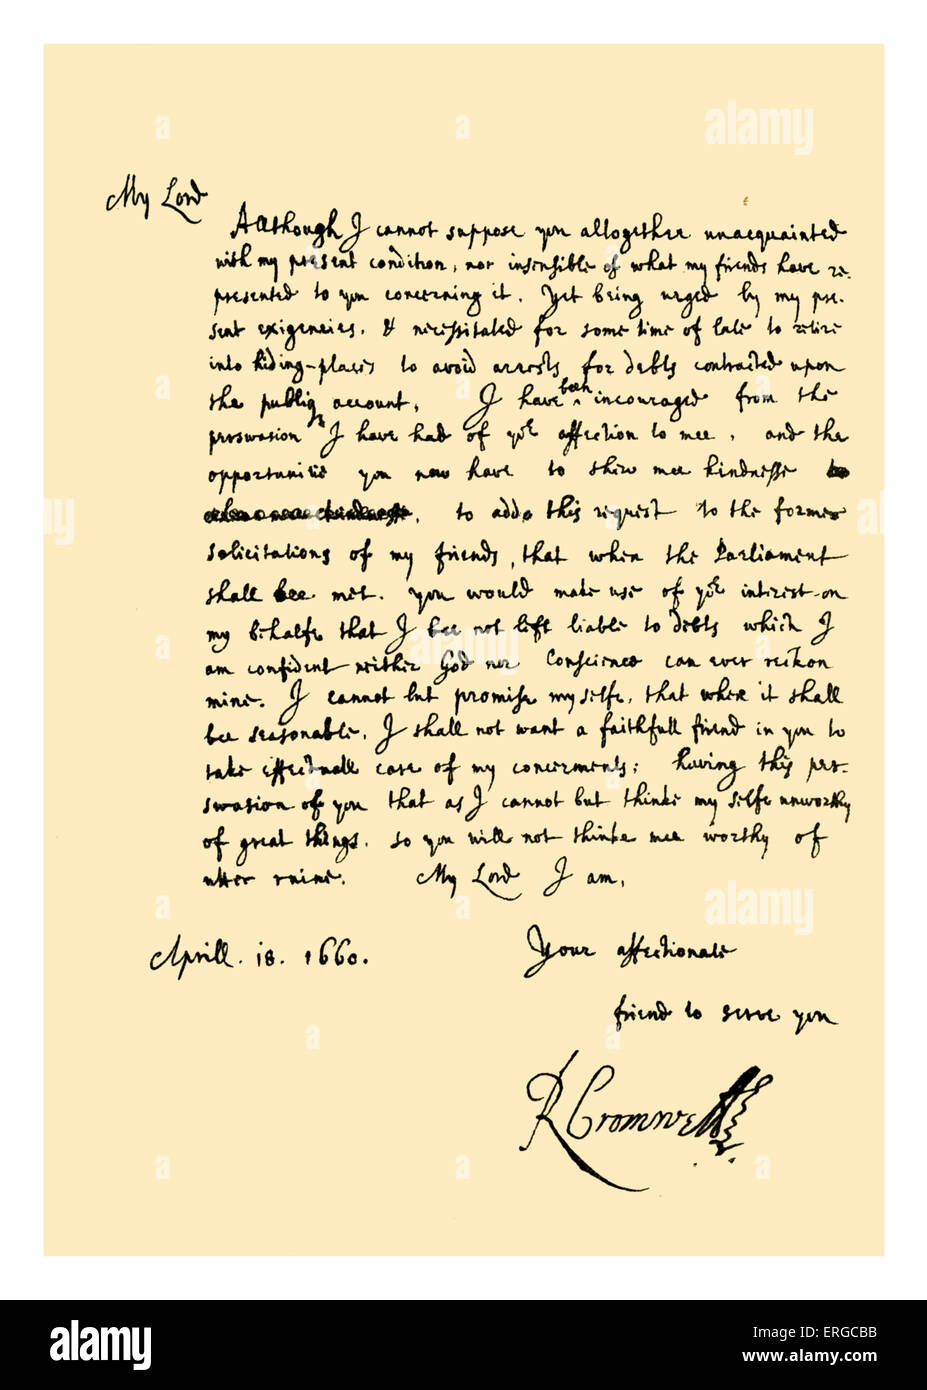 a a alamy
My Lord
Allthough I cannot suppose you alltogether unacquainted
with my present condition, nor insensible of what my friends have re-
presented to you concerning it. Yet being urged by my pre-
sent exigencies, & necessitated for some time of late to retire
into hiding-places to avoid arrests for debts contracted upon
the publiq account, I have been incouraged from the
perswasion I have had of yor affection to mee, and the
opportunitie you now have to shew mee kindnesse
to adde this request to the former
solicitations of my friends, that when the Parliament
shall bee met. you would make use of yor interest on
my behalfe that I bee not left liable to debts which I
am confident neither God nor Conscience can ever reckon
mine. I cannot but promise my selfe, that when it shall
bee seasonable, I shall not want a faithfull friend in you to
take effectuall care of my concernments; having this per-
swasion of you that as I cannot but thinke my selfe unworthy
of great things, so you will not thinke mee worthy of
utter ruine. My Lord I am,
Aprill. 18. 1660.
Your affectionate
friend to serve you
R Cromwell
alamy
Image ID: ERGCBB
www.alamy.com